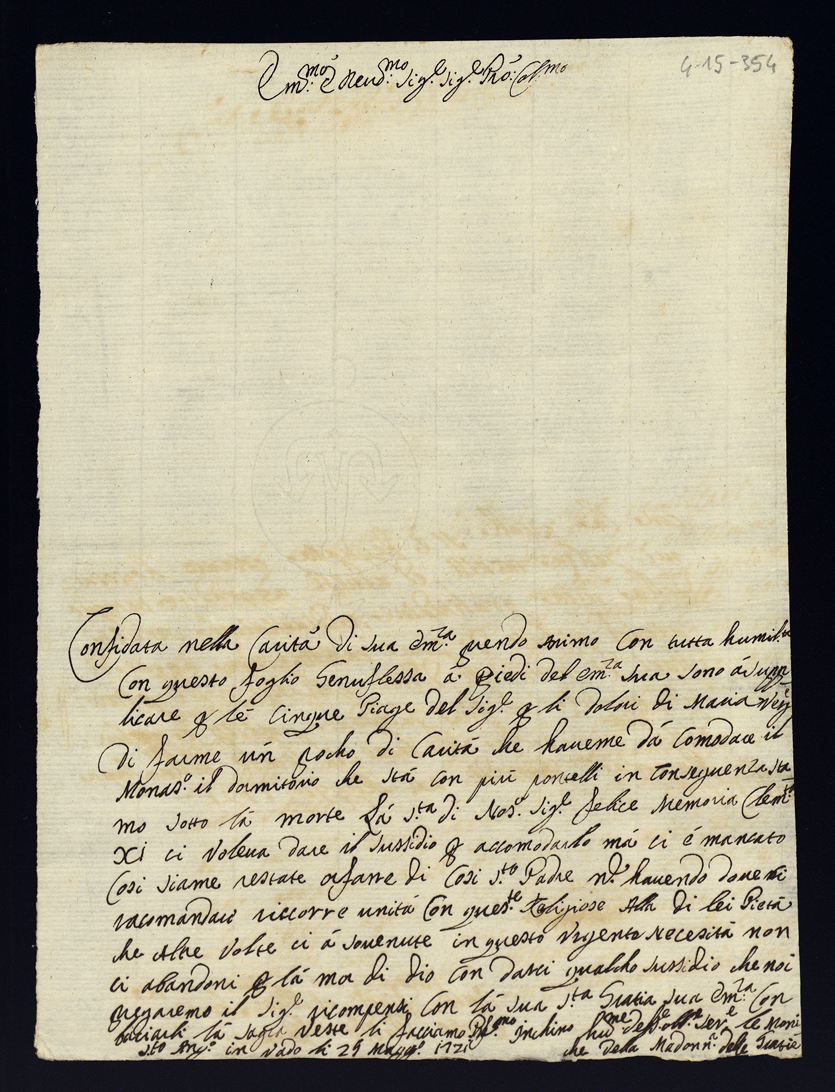 4-15-354
Em.mo e Reud.mo Sig.e Sig.e Prõ: Col.mo
Confidata nella Carità di sua Em.za prendo Animo con tutta humiltà
Con questo foglio Genuflessa à Piedi del em.za sua sono à supp
licare p le Cinque Piage del Sig.e p li dolori di Maria Verg.e
di farme ún pocho di Carità che haveme dà Comodare il
Monas.o il dormitorio che stà con più pontelli in conseguenza sta
mo sotto là morte Là S.ta di Nos.o Sig.e felice Memoria Clem.te
XI ci voleva dare il sussidio p accomodarlo mà ci é mancato
Cosi siame restate orfane di Cosi S.to Padre nõ havendo dove
racomandaci riccorre unità Con ques.te Religiose Alla di lei Pietà
che Altre volte ci à sovenute in questo Urgente Necesità non
ci abandoni p là mor di dio con darci qualcho sussidio che noi
preg̃aremo il Sig.e ricompensi con là sua S.ta Gratia sua Em.za Con
baciarli là sagra Veste li facciamo Pr.mo Inchino
S.to Ang.o in Vado li 29 Magg.o 1721
Hu.me Dev. Obb. Ser.e le Moni
che della Madonn.a delle Gratie